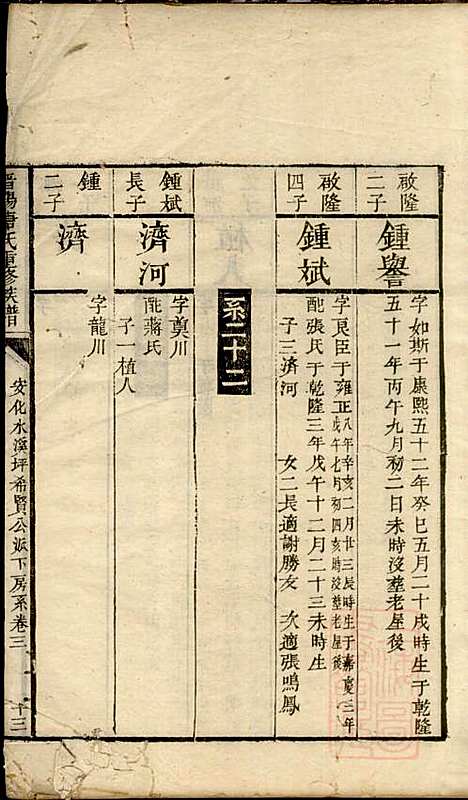 啟隆
二子
鍾譽
字如斯于康熙五十二年癸巳五月二十戌時生于乾隆
五十一年丙午九月初二日未時沒塟老屋後
啟隆
四子
鍾斌
字良臣于雍正八年辛亥二月廿三辰時生于嘉慶三年
戊午七月初四亥時沒塟老屋後
配張氏于乾隆三年戊午十二月二十三未時生
子三濟河 女二長適謝勝友 次適張鳴鳳
系二十二
鍾斌
長子
濟河
字奠川
配蔣氏
子一植人
鍾
二子
濟
字龍川
晋陽唐氏重修族譜
安化水溪坪希賢公派下房系卷三
十三